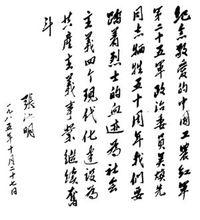 纪念敬爱的中国工农红军
第二十五军政治委员吴焕先
同志牺牲五十周年我们要
踏着烈士的血迹为社会
主義四个现代化建设为
共産主義事業继续奋
斗
張池明
一九八五年十月二十七日